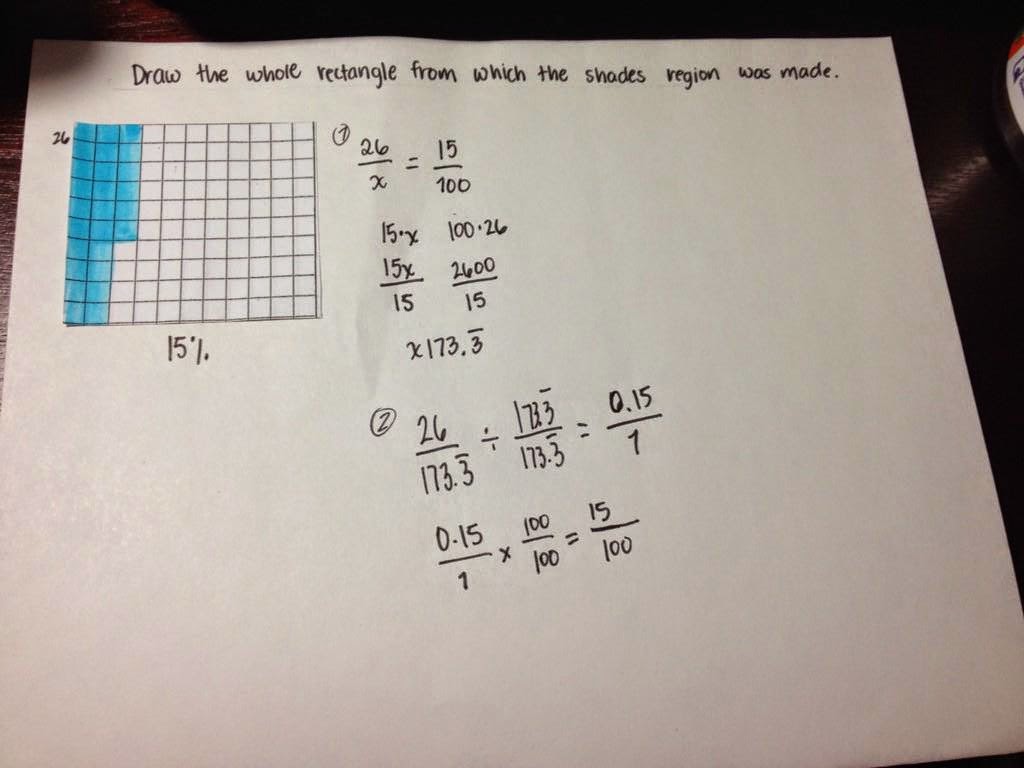 Draw the whole rectangle from which the shades region was made.
26
15%
① 26/x = 15/100
15·x 100·26
15x/15 2600/15
x 173.3̅
② 26/173.3̅ ÷ 173.3̅/173.3̅ = 0.15/1
0.15/1 × 100/100 = 15/100